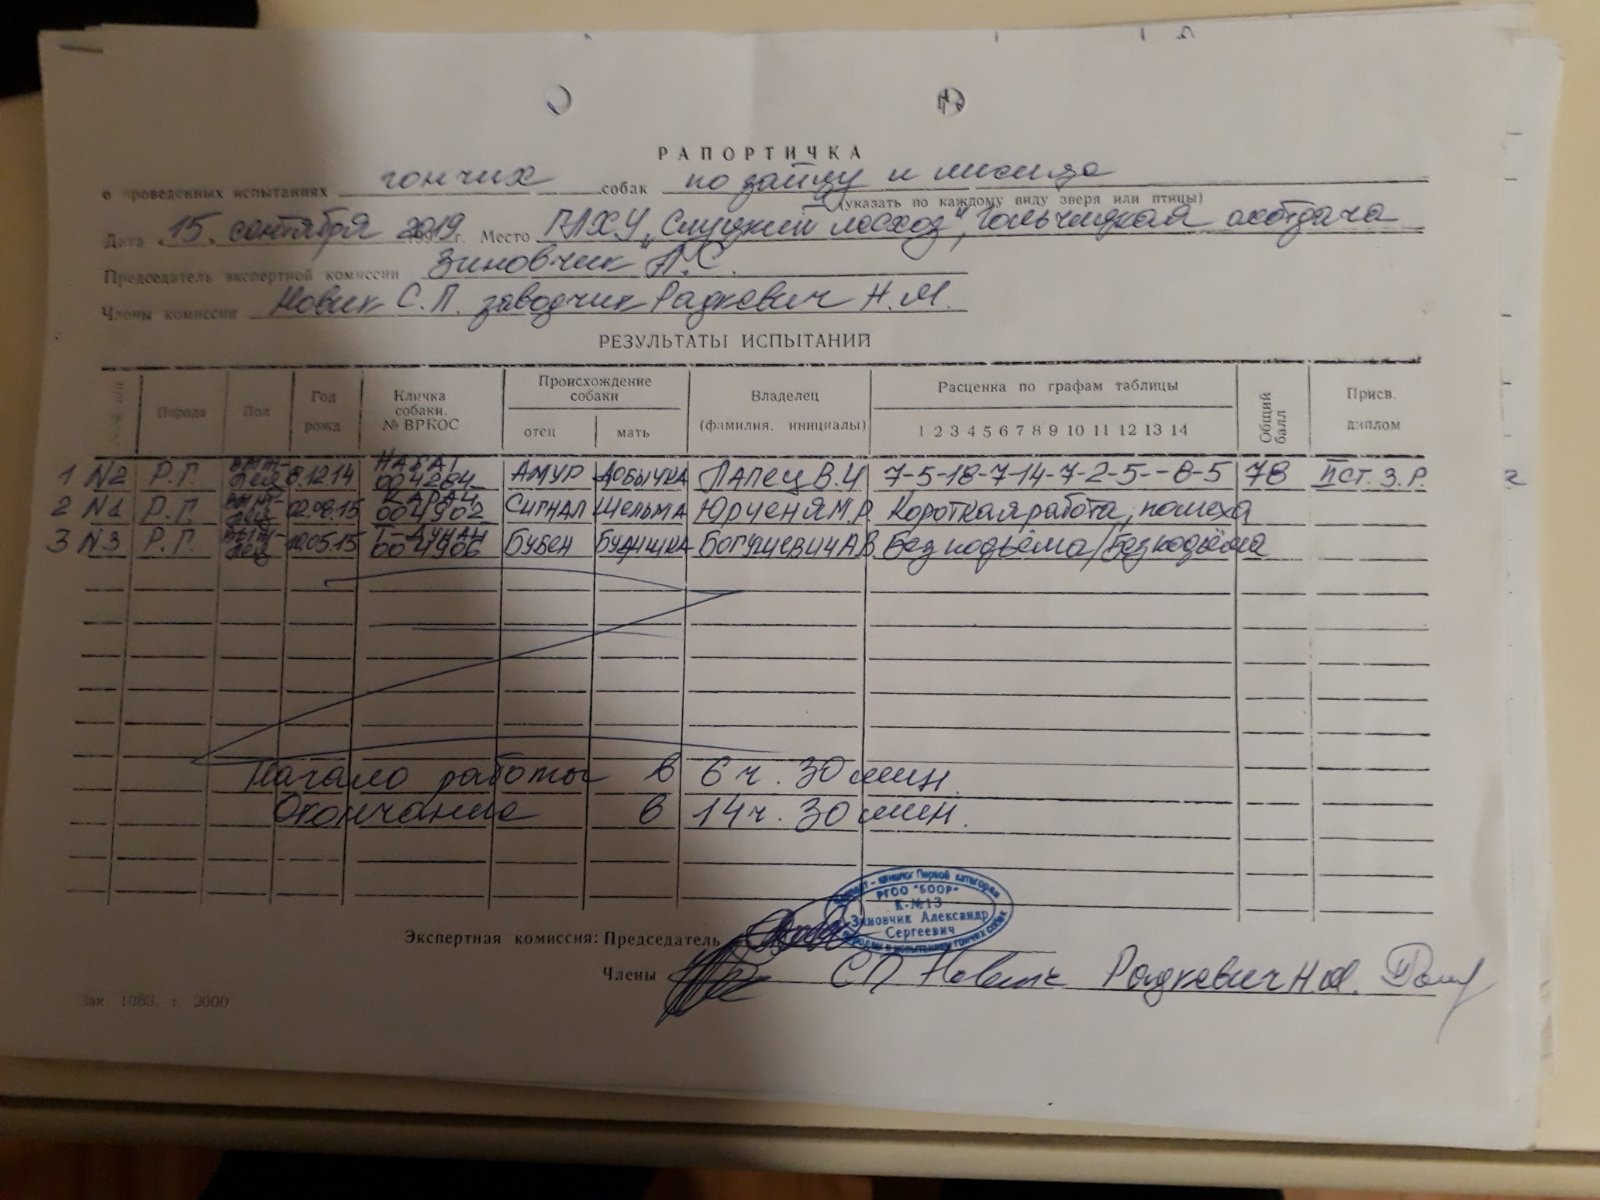 РАПОРТИЧКА
о проведенных испытаниях гончих собак по зайцу и лисице
(указать по каждому виду зверя или птицы)
Дата «15» сентября 2019 г. Место ГЛХУ „Слуцкий лесхоз", охотдача
Председатель экспертной комиссии Зиновчик А.С.
Члены комиссии Новик С.П. заводчик Радкевич Н.М.
РЕЗУЛЬТАТЫ ИСПЫТАНИЙ
Порода Пол Год рожд. Кличка собаки. № ВРКОС Происхождение собаки отец мать Владелец (фамилия, инициалы) Расценка по графам таблицы 1 2 3 4 5 6 7 8 9 10 11 12 13 14 Общий балл Присв. диплом
1 N2 Р.Г. 8.12.14 НАБАТ 004264 АМУР ДОБЫЧКА ЛАПЕЦ В.И 7-5-18-7-14-7-2-5--8-5 78 II СТ. З.Р.
2 N1 Р.Г. 02.08.15 КАРАЙ 004902 СИГНАЛ ШЕЛЬМА ЮРЧЕНЯ М.Р Короткая работа, помеха
3 N3 Р.Г. 05.15 004906 БУБЕН БОГУШЕВИЧ А.В. Без подъёма/Без подъёма
Начало работы в 6 ч. 30 мин.
Окончание в 14 ч. 30 мин.
Эксперт - кинолог Первой категории
РГОО "БООР"
К-№13
Зиновчик Александр
Сергеевич
по породам и испытаниям гончих собак
Экспертная комиссия: Председатель
Члены СП Новик Радкевич Н.М.
Зак. 1083, т. 3000